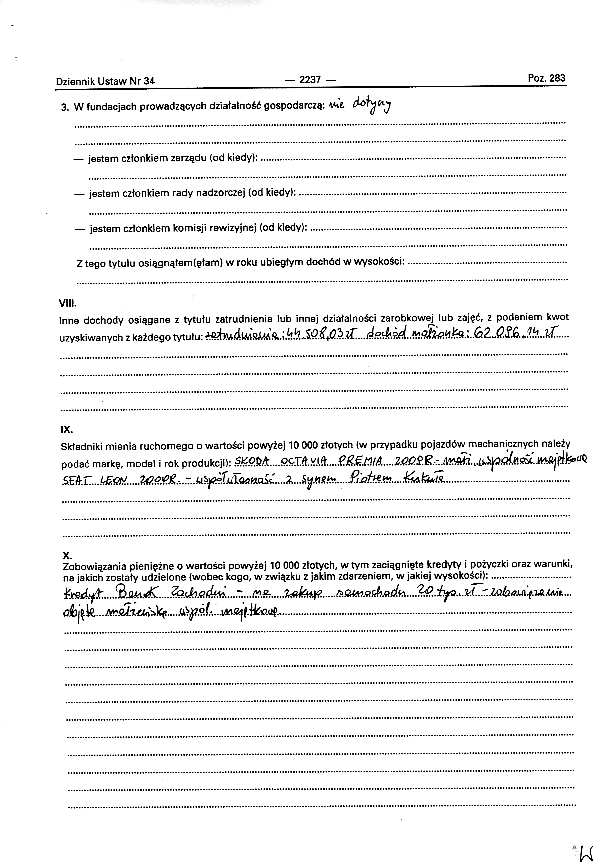 Dziennik Ustaw Nr 34 — 2237 — Poz. 283
3. W fundacjach prowadzących działalność gospodarczą: nie dotyczy
— jestem członkiem zarządu (od kiedy):
— jestem członkiem rady nadzorczej (od kiedy):
— jestem członkiem komisji rewizyjnej (od kiedy):
Z tego tytułu osiągnąłem(ęłam) w roku ubiegłym dochód w wysokości:
VIII.
Inne dochody osiągane z tytułu zatrudnienia lub innej działalności zarobkowej lub zajęć, z podaniem kwot
uzyskiwanych z każdego tytułu: zatrudnienie: 44 508,03 zł dochód małżonka: 62 096,14 zł
IX.
Składniki mienia ruchomego o wartości powyżej 10 000 złotych (w przypadku pojazdów mechanicznych należy
podać markę, model i rok produkcji): SKODA OCTAVIA PREMIA 2008R - małż. wspólność majątkowa
SEAT LEON 2000R. - współwłasność z synem Piotrem
X.
Zobowiązania pieniężne o wartości powyżej 10 000 złotych, w tym zaciągnięte kredyty i pożyczki oraz warunki,
na jakich zostały udzielone (wobec kogo, w związku z jakim zdarzeniem, w jakiej wysokości):
Kredyt Bank Zachodni - na zakup samochodu 20 tys. zł - zobowiązanie
objęte małżeńską wspól. majątkową